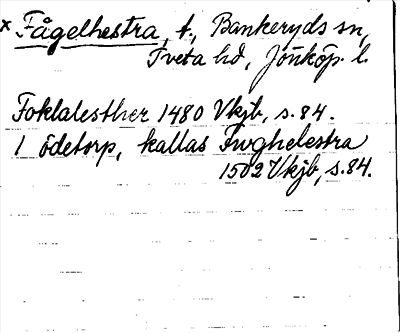 x Fågelhestra, t., Bankeryds sn,
Tveta hd, Jönköp. l.
Foklalesther 1480 Vkjb, s. 84.
1 ödetorp, kallas Fwghelestra
1502 Vkjb, s. 84.